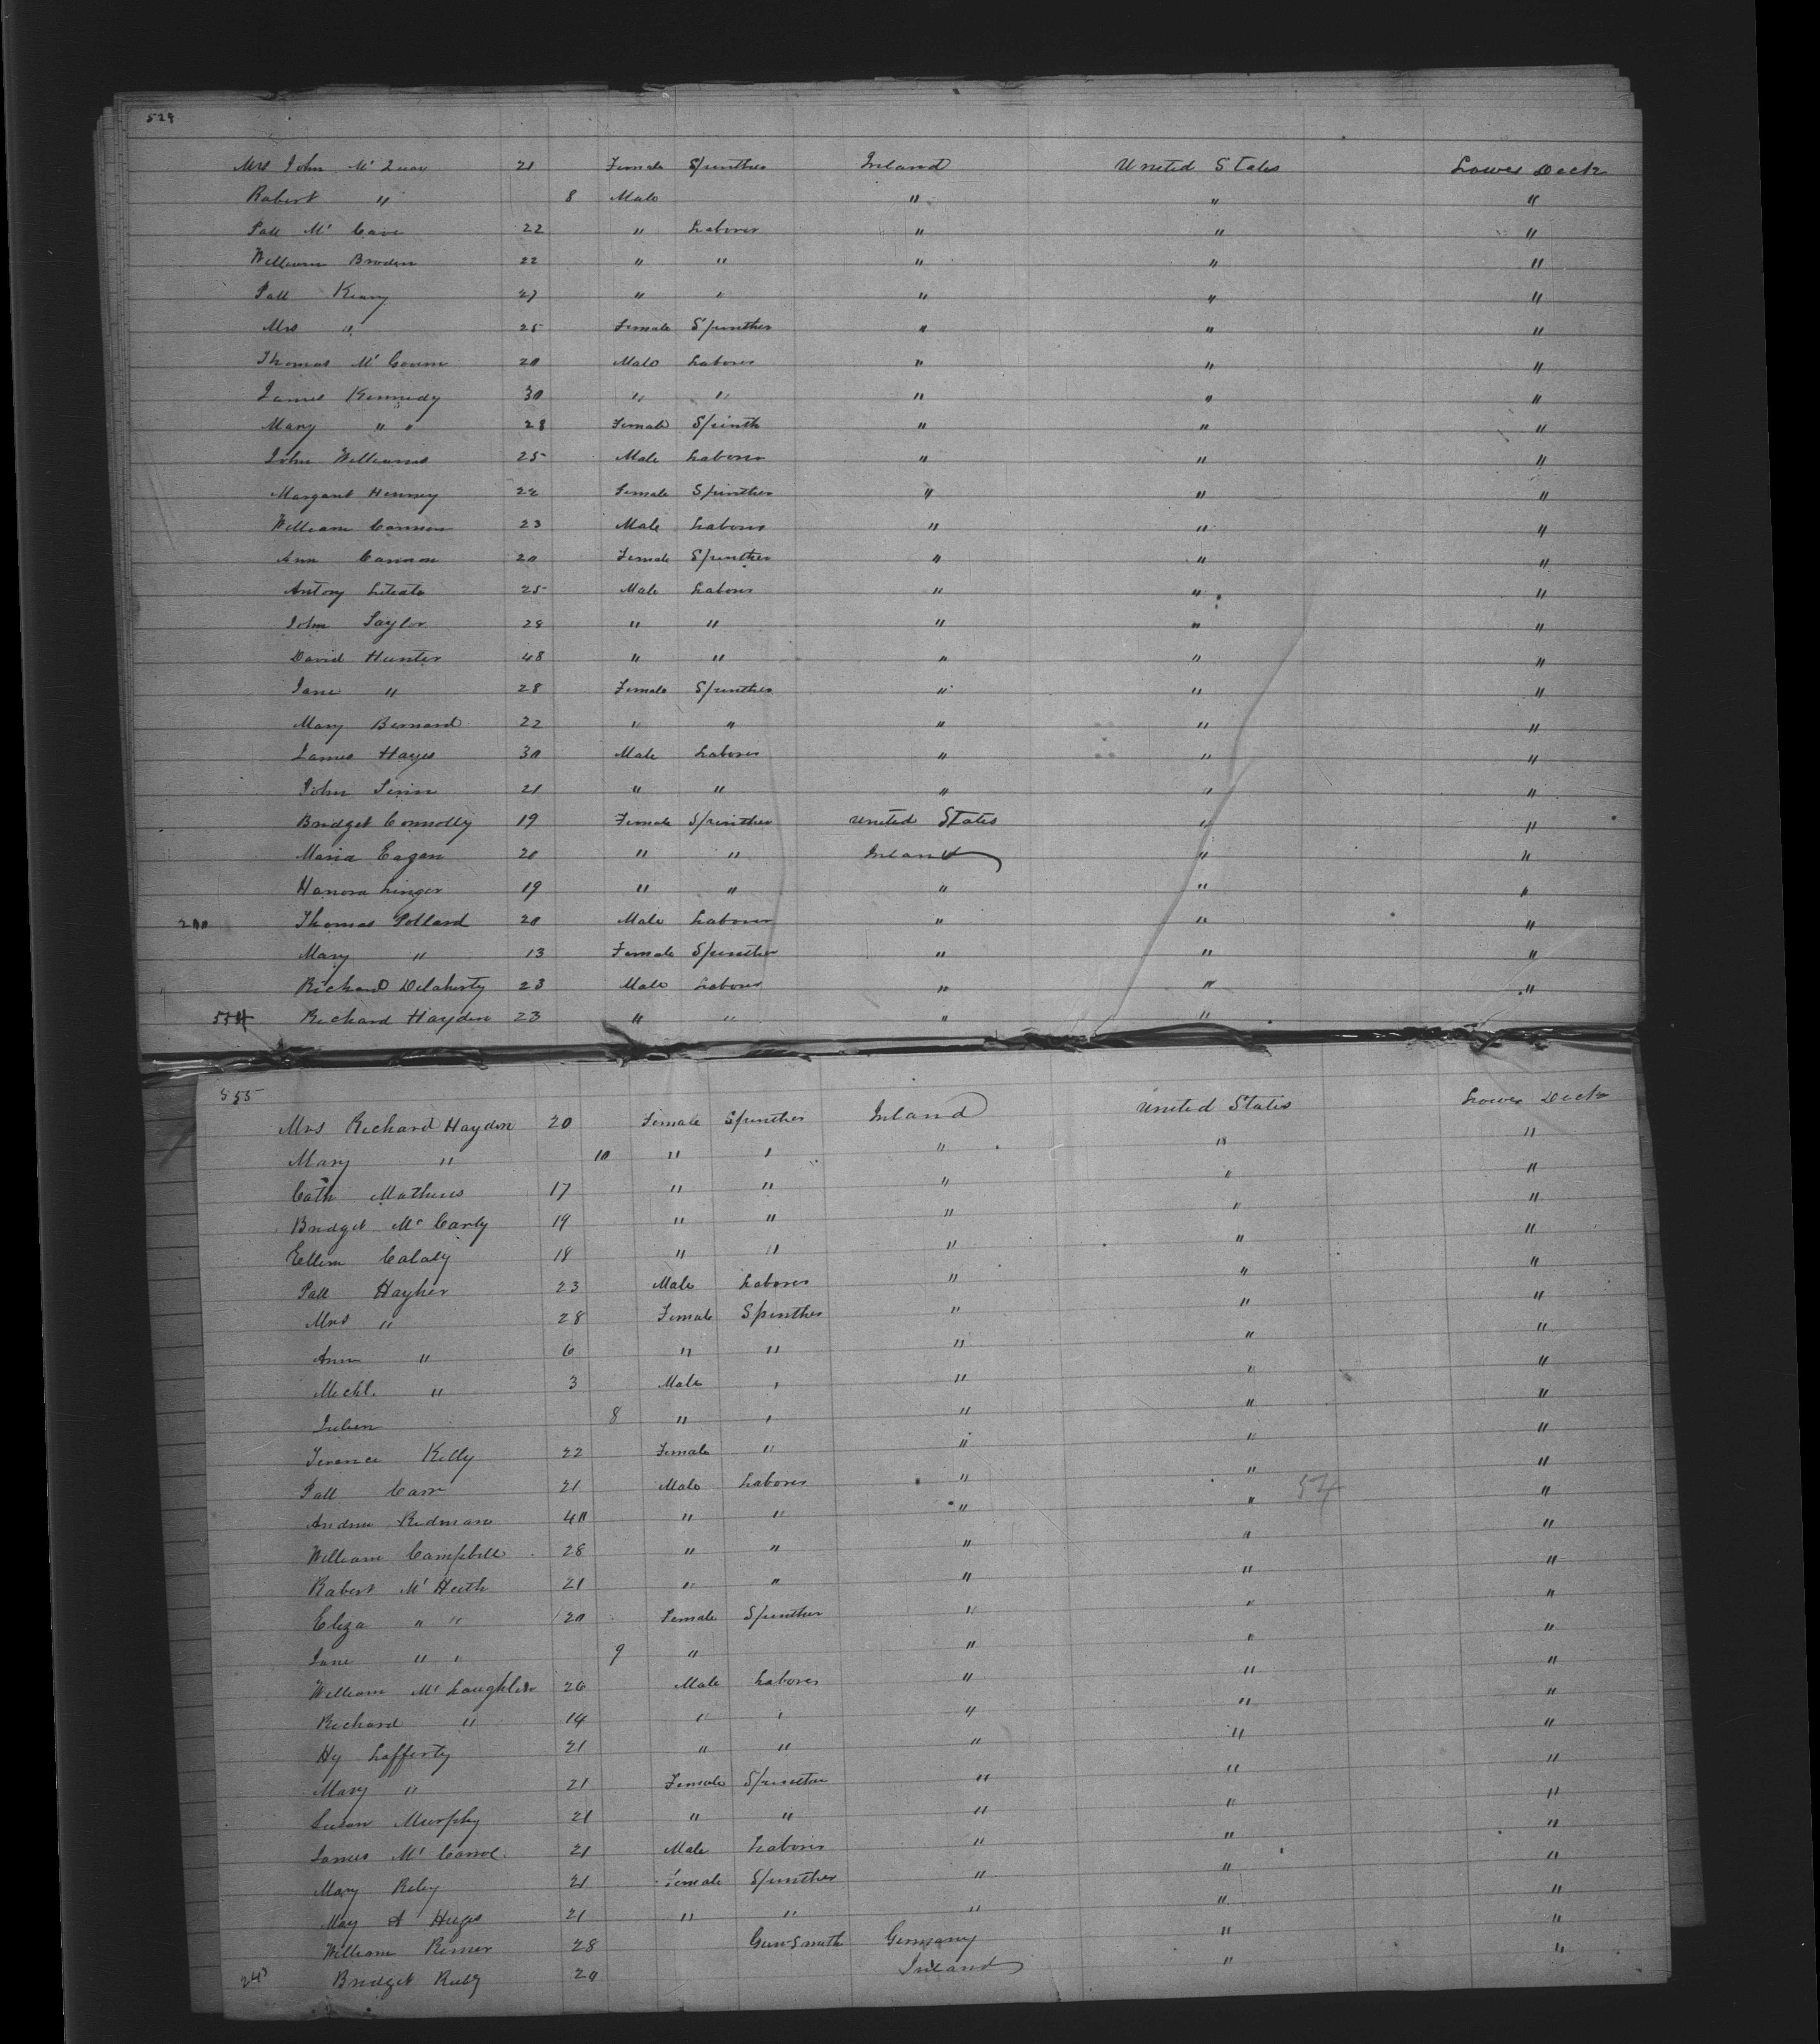 529
Mrs John Mc 21 Female Spinther Ireland United States Lower Deck
Robert " 8 Male " " "
Patt Mc Cave 22 " Laborer " " "
William Broden 22 " " " " "
Patt Keary 27 " " " " "
Mrs " 25 Female Spinther " " "
Thomas Mc Gounn 20 Male Laborer " " "
James Kennedy 30 " " " " "
Mary " " 28 Female Spinth " " "
John Williams 25 Male Laborer " " "
Margaret Henney 22 Female Spinther " " "
William Cannon 23 Male Laborer " " "
Ann Cannon 20 Female Spinther " " "
Antony 25 Male Laborer " " "
John Taylor 24 " " " " "
David Hunter 48 " " " " "
Jane " 28 Female Spinther " " "
Mary Bernard 22 " " " " "
James Hayes 30 Male Laborer " " "
John 21 " " " " "
Bridget Connolly 19 Female Spinther United States " "
Maria Eagan 20 " " Ireland " "
Hanora Linger 19 " " " " "
200 Thomas Pollard 20 Male Laborer " " "
Mary " 13 Female Spinther " " "
Richard Delaherty 23 Male Laborer " " "
554 Richard Hayden 23 " " " "
555
Mrs Richard Hayden 20 Female Spinther Ireland United States Lower Deck
Mary " 10 " " " " "
Cath Mathews 17 " " " " "
Bridget Mc Carty 19 " " " " "
Ellen Calaly 18 " " " " "
Patt Hayher 23 Male Laborer " " "
Mrs " 28 Female Spinther " " "
Ann " 6 " " " " "
Michl. " 3 Male " " " "
Julien 8 " " " " "
Terence Kelly 22 Female " " " "
Patt Carr 21 Male Laborer " " "
54
Andrew Redman 40 " " " " "
William Campbell 28 " " " " "
Robert Mc Heeth 21 " " " " "
Eliza " " 20 Female Spinther " " "
Jane " " 9 " " " "
William Mc Laughlin 26 Male Laborer " " "
Richard " 14 " " " " "
Hy Lafferty 21 " " " " "
Mary " 21 Female Spinther " " "
Susan Murphy 21 " " " " "
James Mc Carrol 21 Male Laborer " " "
Mary Riley 21 Female Spinther " " "
May A Huges 21 " " " " "
William Rimer 28 Gun Smith Germany " "
243 Bridget Ruby 20 Ireland " "